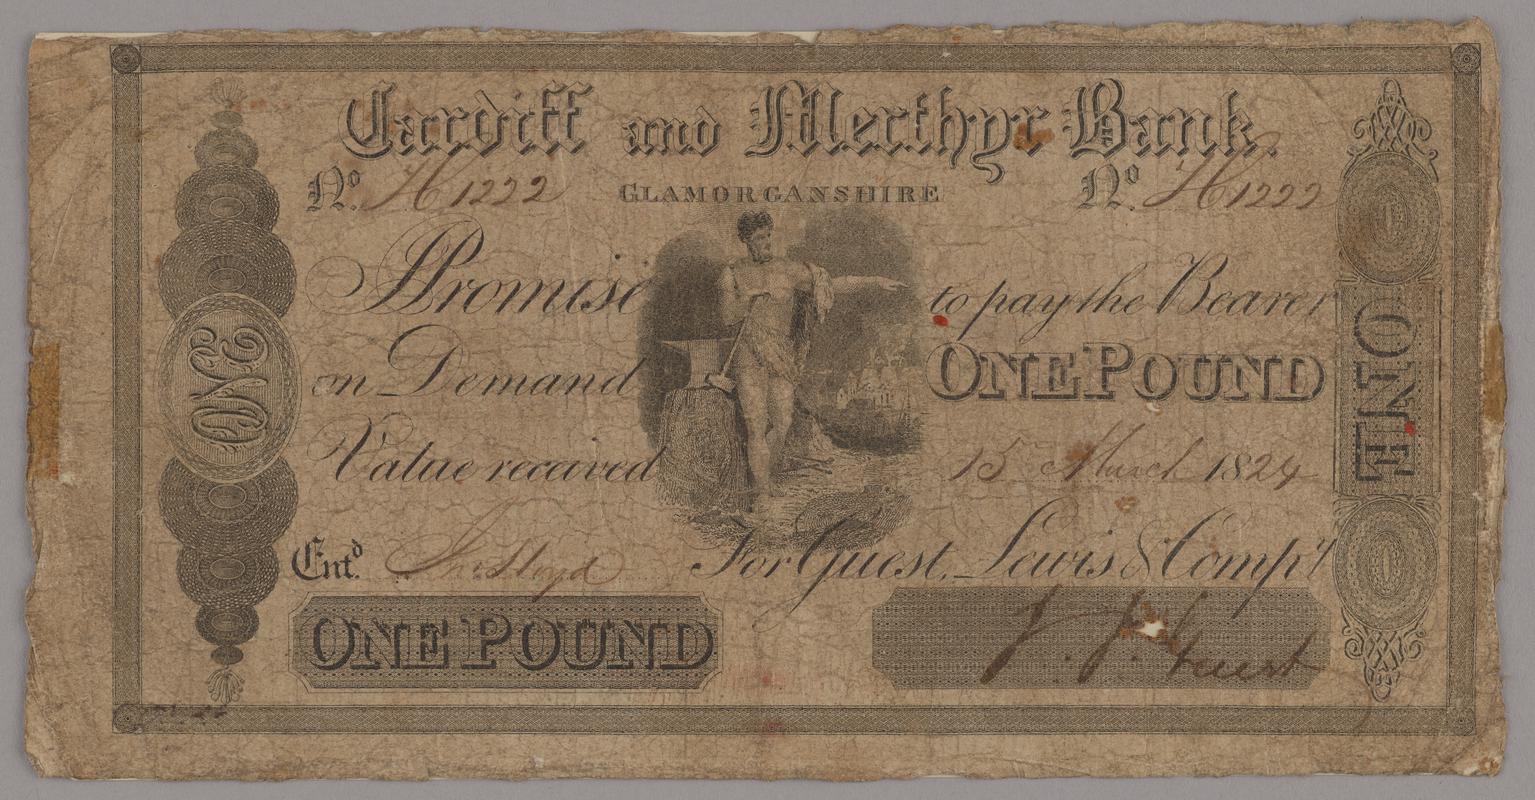 Cardiff and Merthyr Bank.
No. H1222 GLAMORGANSHIRE No. H1222
I Promise to pay the Bearer
on Demand ONE POUND
Value received 15 March 1824
Entd. Jn. Lloyd For Guest, Lewis & Compy
ONE POUND J. J. Guest
ONE
ONE